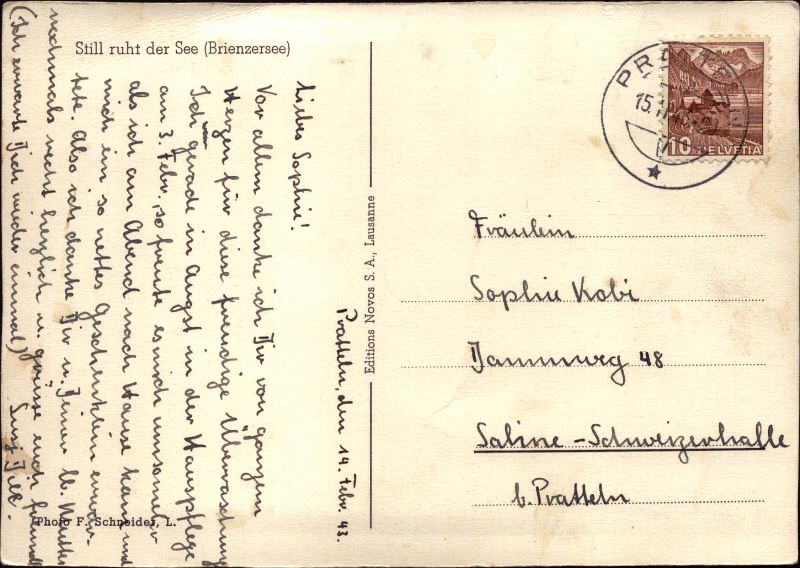 Still ruht der See (Brienzersee)
Pratteln, den 14. Febr. 43.
Liebes Sophie!
Vor allem danke ich Dir von ganzem
Herzen für diese freudige Überraschung
Ich war gerade in Angst in der Hauspflege
am 3. Febr., so freute es mich umsomehr
als ich am Abend nach Hause kam und
mich ein so nettes Geschenklein erwar-
tete. Also ich danke Dir u. Deiner lb. Mutter
nochmals recht herzlich u. grüsse euch freundl
(Ich erwarte Dich wieder einmal)
Photo F. Schneider, L.
Editions Novos S. A., Lausanne
PRATTELN
15.
10 HELVETIA
Fräulein
Sophie Kobi
Dammweg 48
Saline-Schweizerhalle
b. Pratteln